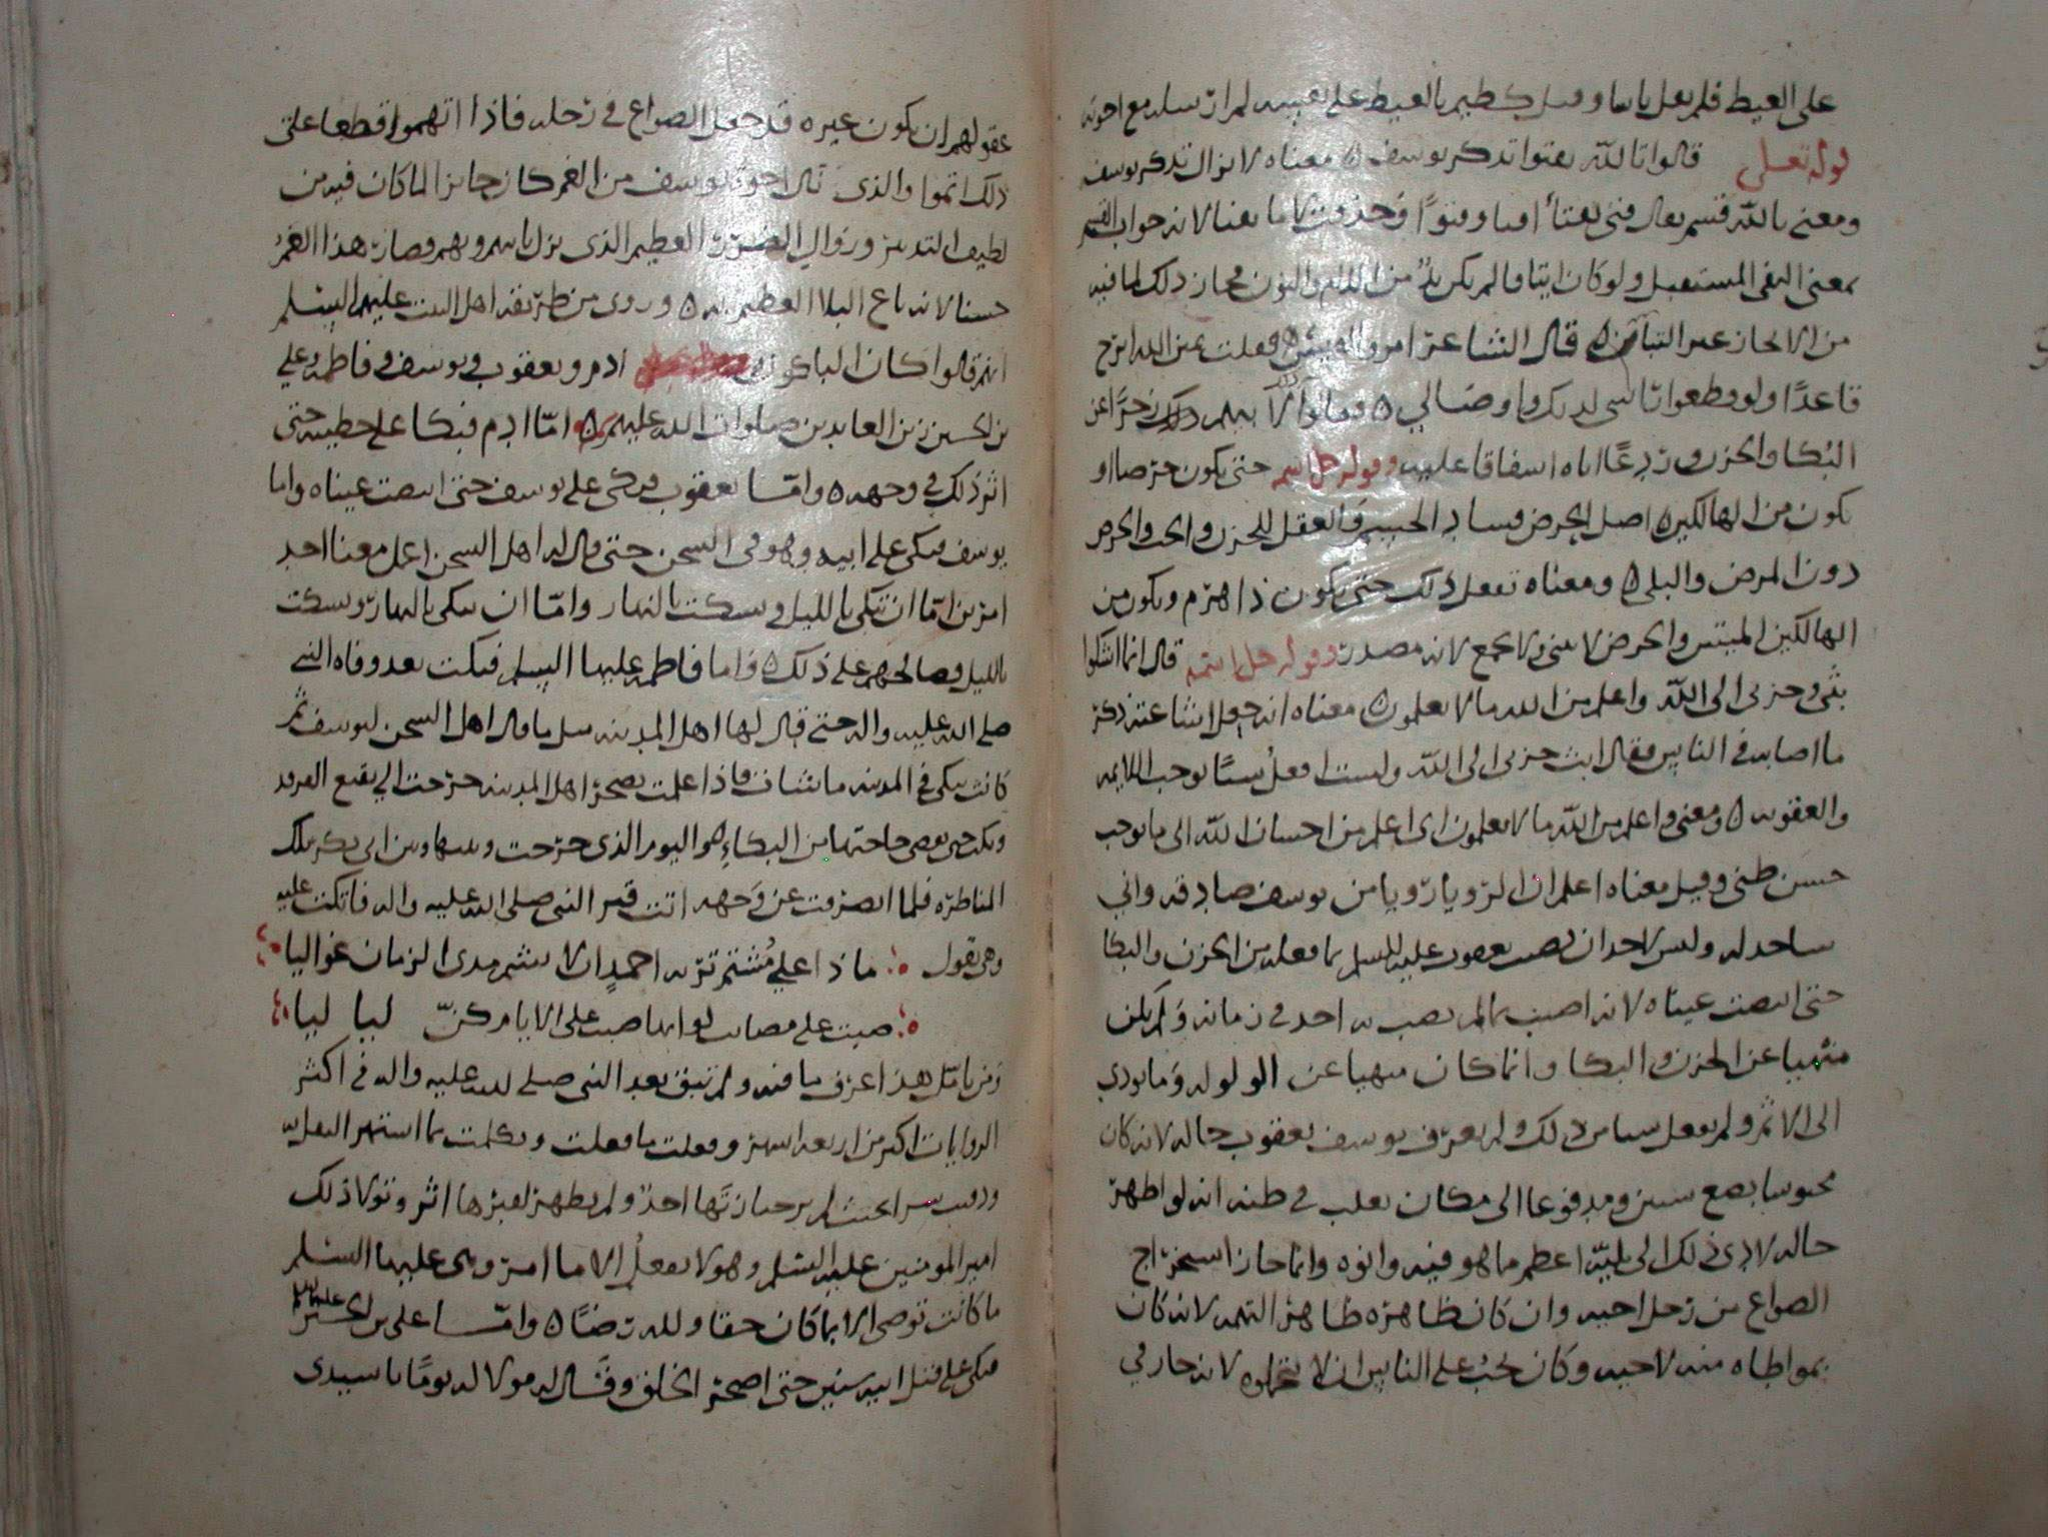 على الغيظ فلم يقل باسا وقيل كظيم بالغيظ على نفسه لم ارسله مع اخوته
قوله تعلى قالوا تالله تفتوا تذكر يوسف ه معناه لا تزال تذكر يوسف
ومعنى بالله قسم يقال فتى يفتأ وفتوًا وحذفت لا ما يفتا لانه جواب القسم
بمعنى النفى المستقبل ولو كان اثباتا لم يكن بدٌ من اللام والنون فجاز ذلك لما فيه
من الايجاز عير التباس ه قال الشاعر امرو القيس ه فقلت يمين الله ابرح
قاعدًا ولو قطعوا راسى لديك واوصالي ه وقالوا
البكا والحزن اياه اسفاقا عليه وقوله جل اسمه حتى يكون حرضا او
يكون من الهالكين ه اصل الحرض فساد الجسم والعقل للحزن والحب والحرض
دون المرض والبلى ه ومعناه تفعل ذلك حتى يكون ذا هرم ويكون من
الهالكين الميتين والحرض لا يثنى ولا يجمع لانه مصدر وقوله جل اسمه قال انما اشكوا
بثى وحزنى الى الله واعلم من الله مالا يعلمون ه معناه انه جعل اشاعته ذكر
ما اصابه فى الناس فقال ابث حزنى الى الله ولست افعل شيئا يوجب اللايمه
والعقوبه ه ومعنى واعلم من الله ما لا يعلمون اى اعلم من احسان الله الى ما يوجب
حسن ظنى وقيل معناه اعلم ان الرويا رويا من يوسف صادقه واني
ساجد له وليس لاحد ان يصف يعقوب عليه السلم بما فعله من الحزن والبكا
حتى ابيضت عيناه لانه اصيب بما لم يصب به احد فى زمانه ولم يكن
منهيا عن الحزن والبكا وانما كان منهيا عن الولوله وما يودى
الى الاثم ولم يفعل شيا من ذلك ولم يعرف يوسف يعقوب حاله لانه كان
محبوسا بضع سنين ومدفوعا الى مكان يغلب فى ظنه انه لو اظهر
حاله لادى ذلك الى بليّه اعظم ما هو فيه وابوه وانما جاز استخراج
الصواع من رحل اخيه وان كان ظاهره ظاهر التهمه لانه كان
بمواطاه منه لاخيه وكان يجب على الناس ان لا يتهموه لانه جاز في
عقولهم ان يكون غيره قد جعل الصواع فى رحله فاذا اتهموا قطعا على
ذلك اثموا والذى نال اخوة يوسف من الغم كان جايزا لما كان فيه من
لطيف التدبير وزوال الضرر العظيم الذى نزل بابيه وبهم وصار هذا الغم
حسنا لانه باع البلا العظيم به ه وروى من طريقه اهل البيت عليهم السلم
انهم قالوا كان الباكون ادم ويعقوب ويوسف وفاطمه وعلي
بن الحسين زين العابدين صلوات الله عليهم ه امّا ادم فبكا على خطيته حتى
اثر ذلك فى وجهه ه وامّا يعقوب فبكى على يوسف حتى ابيضت عيناه واما
يوسف فبكى على ابيه وهو فى السجن حتى قال له اهل السجن اعمل معنا احد
امرين امّا ان تبكى بالليل وتسكت بالنهار وامّا ان تبكى بالنهار وتسكت
بالليل فصالحهم على ذلك ه واما فاطمه عليها السلم فبكت بعد وفاه النبى
صلى الله عليه واله حتى قال لها اهل المدينه مثل ما قال اهل السجن ليوسف ثم
كانت تبكى فى المدينه ما شات فاذا علمت بضجر اهل المدينه خرجت الى بقيع الغرقد
وبكت حتى تقضى حاجتها من البكاء هو اليوم الذى خرجت وبينها وبين ابى بكر تلك
المناظره فلما انصرفت عن وجهه اتت قبر النبى صلى الله عليه واله فاتكت عليه
وهى تقول ماذا على مُشتم تربه احمدٍ ان لا يشم مدى الزمان غواليا
صبت على مصائب لو انها صبت على الايام كنّ لياليا
ومن تامّل هذا عرف ما فيه ولم تبق بعد النبى صلى الله عليه واله فى اكثر
الروايات اكثر من اربعه اشهر وفعلت ما فعلت وتكلمت بما اشتهر النقل به
ودفنت سرا بحيث لم ير جنازتها احدٌ ولم يظهر لقبرها اثر وتولا ذلك
امير المومنين عليه السلم وهو لا يفعل الا ما امر وهى عليها السلم
ما كانت توصى الا بما كان حقا ولله رضًا ه وامّا على بن الحسين عليهما السلم
فبكى على قتل ابيه سنين حتى اضجر الخلق وقال له مولا له يومًا يا سيدى